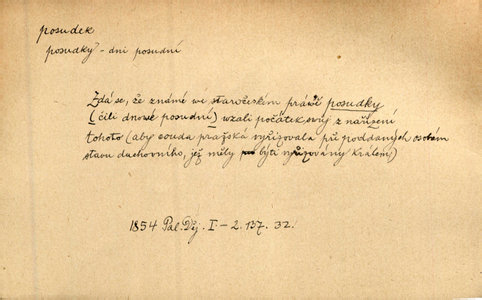 posudek
posudky - dni posudní
Zdá se, že známé we staročeském práwě posudky
(čili dnowé posudní) wzali počátek swůj z nařízení
tohoto (aby souda pražská wyřizowala pře poddaných osobám
stavu duchovního, jež měly býti wyřizowány králem)
1854 Pal. Děj. I - 2. 137. 32.